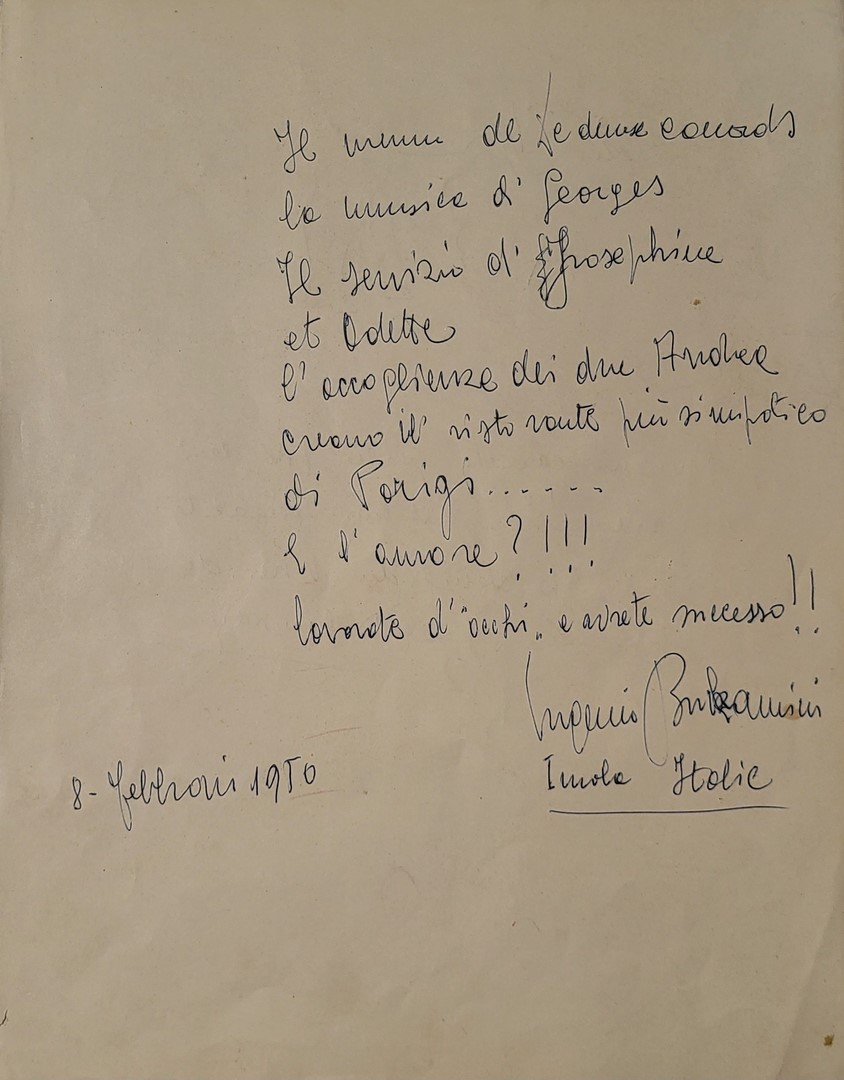 Il menu de Le deux canards
la musica di Georges
Il servizio di Josephine
et Odette
l'accoglienza dei due Andrea
creano il ristorante più simpatico
di Parigi......
E l'amore?!!!
lavorate d'"occhi" e avrete successo!!
Eugenio
Imola Italie
8- febbraio 1950